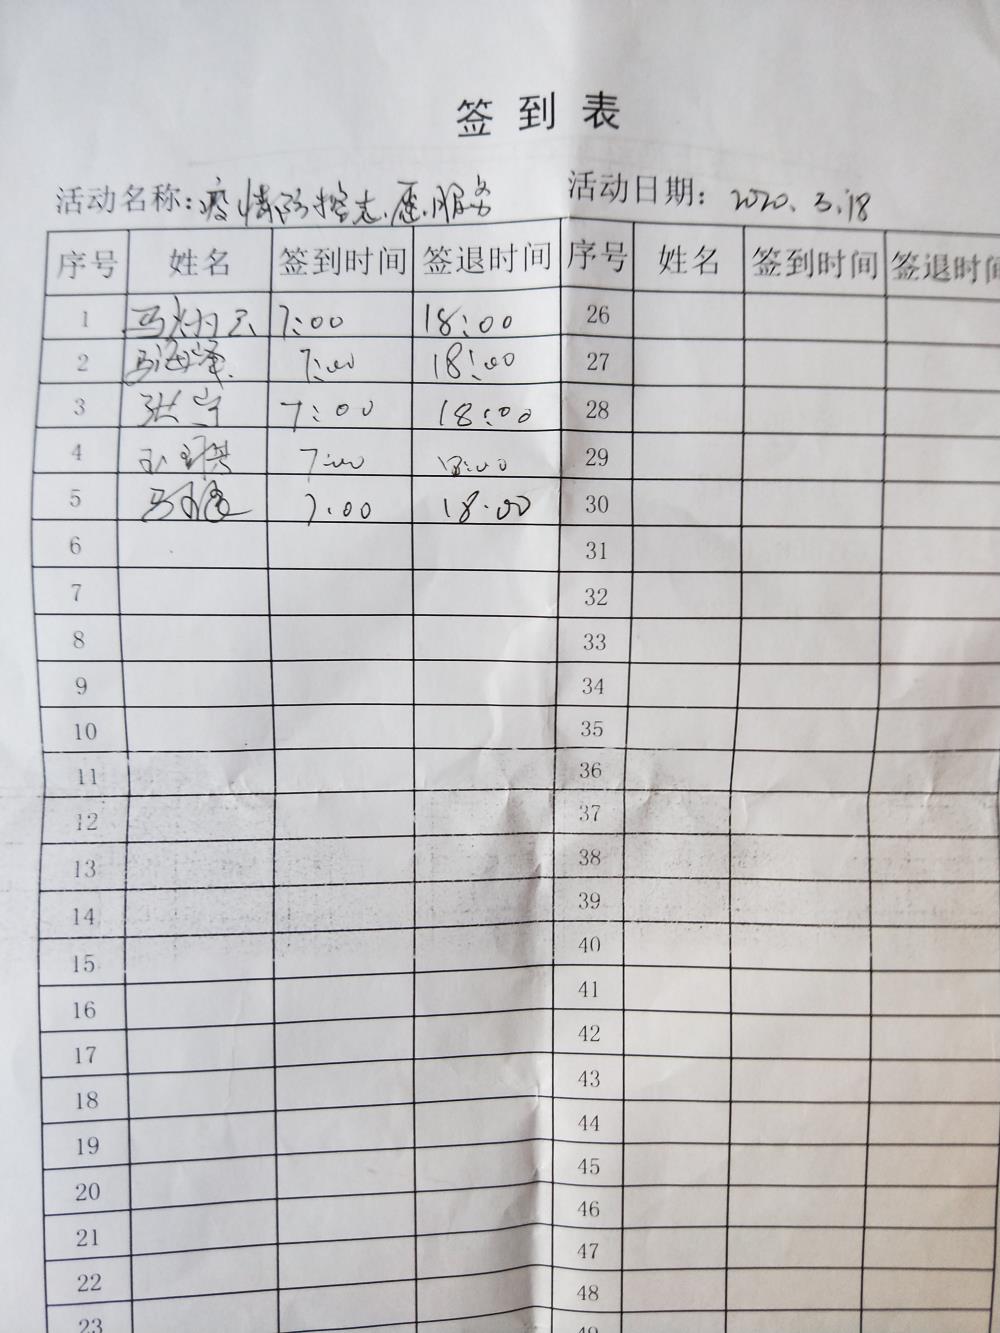 签到表
活动名称:疫情防控志愿服务 活动日期: 2020.3.18
序号 姓名 签到时间 签退时间 序号 姓名 签到时间 签退时间
1 7:00 18:00 26
2 马海泽 7:00 18:00 27
3 张宇 7:00 18:00 28
4 7:00 18:00 29
5 7:00 18:00 30
6 31
7 32
8 33
9 34
10 35
11 36
12 37
13 38
14 39
15 40
16 41
17 42
18 43
19 44
20 45
21 46
22 47
23 48
49